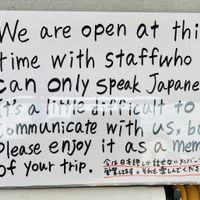 We are open at this
time with staffwho
can only speak Japane
It's a little difficult to
communicate with us, bu
please enjoy it as a mem
of your trip.
今は日本語しか話せないメンバーで
営業してます。それも楽しんでくださ